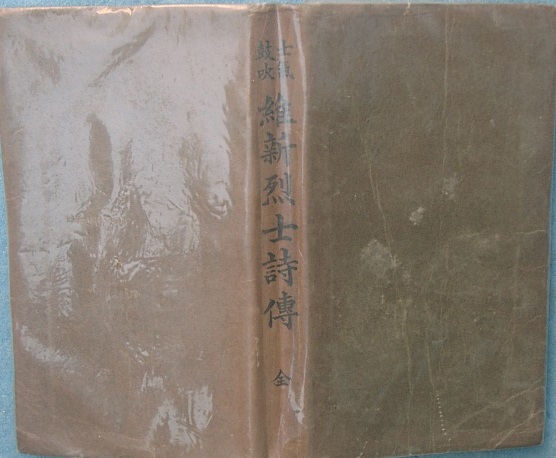 士氣
鼓吹
維新烈士詩傳
全